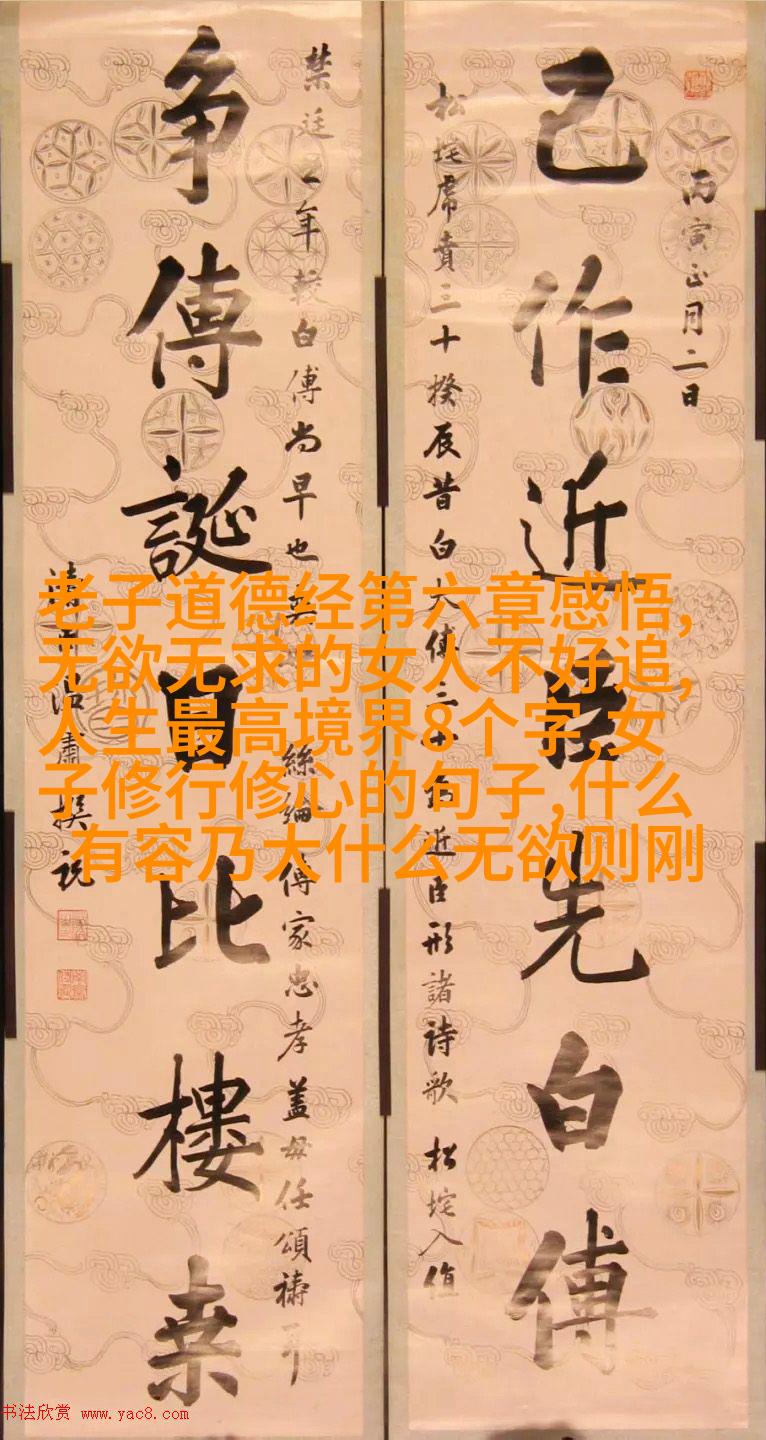 丙寅正月二日
己作近先白傅
松垞席賁三十揆辰昔白大傅三十近臣形諸詩歌 松垞入值
禁廷年較白傅尚早也 絲綸傳家忠孝蓋毋任頌禱耳
争傳誕日比樓桑
肅撰祝
老子道德经第六章感悟,
无欲无求的女人不好追,
人生最高境界8个字,女
子修行修心的句子,什么
,有容乃大什么无欲则刚
书法欣赏 www.yac8.com